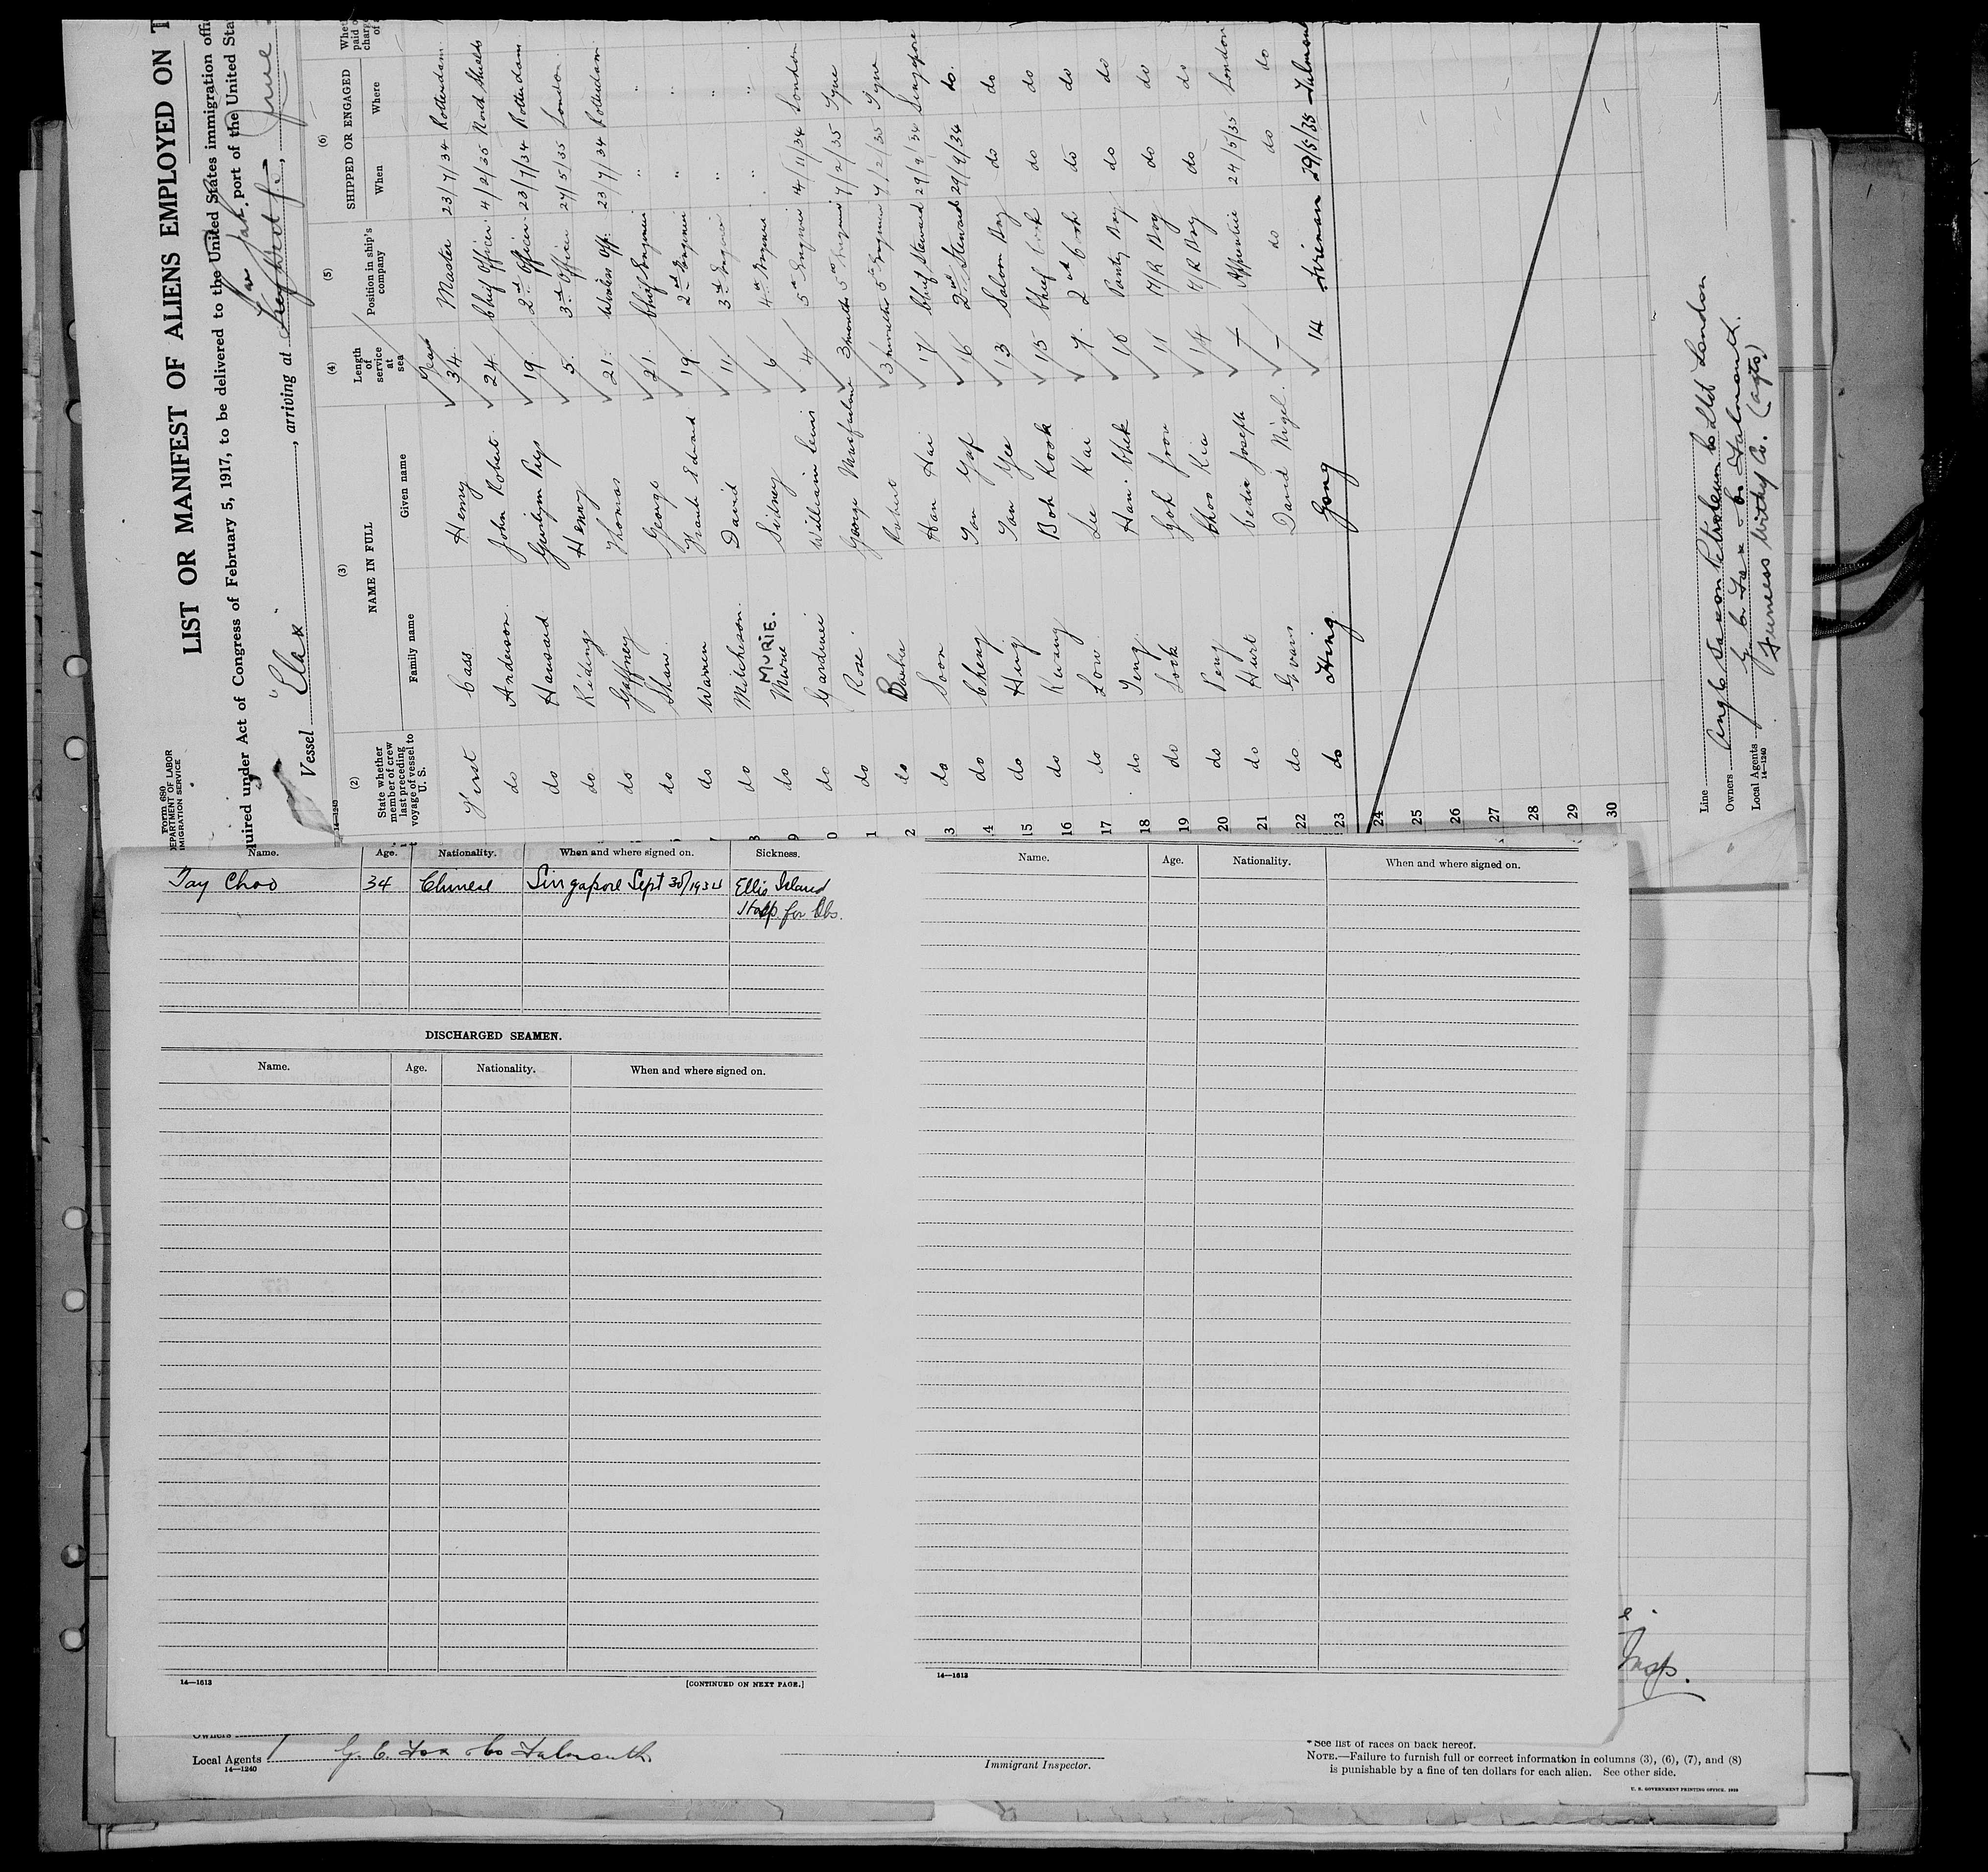 LIST OR MANIFEST OF ALIENS EMPLOYED ON T
quired under Act of Congress of February 5, 1917, to be delivered to the United States immigration offi
port of the United Sta
Vessel "Elax", arriving at June
Form 680
DEPARTMENT OF LABOR
IMMIGRATION SERVICE
14—1240
(2) (3) (4) (5) (6)
State whether member of crew last preceding voyage of vessel to U. S.
NAME IN FULL
Family name Given name
Length of service at sea
Position in ship's company
SHIPPED OR ENGAGED
When Where
Years
First Cass Henry 34 Master 23/7/34 Rotterdam
do Anderson John Robert 24 Chief Officer 4/2/35 North Shields
do Gwilym Pugh 19 2nd Officer 23/7/34 Rotterdam
do Riding Henry 5 3rd Officer 24/5/35 London
do Gaffney Thomas 21 Wireless Off. 23/7/34 Rotterdam
do Shaw George 21 Chief Engineer " "
do Warren Frank Edward 19 2nd Engineer " "
do Mitcheson David 11 3rd Engineer " "
8 do Murie MURIE. Sidney 6 4th Engineer " "
9 do Gardiner William Lewis 4 5th Engineer 4/11/34 London
0 do Rose George Macfarlane 3 months 5th Engineer 4/2/35 Tyne
1 do Robert 3 months 5th Engineer 4/2/35 Tyne
2 do Soon Han Hai 17 Chief Steward 29/9/34 Singapore
3 do Cheng Tan Yaf 16 2nd Steward 29/9/34 do.
4 do Heng Tan Yee 13 Saloon Boy do do
15 do Kwang Boh Kook 15 Chief Cook do do
16 do Low Lee Kai 7 2nd Cook do do
17 do Teng Han Chek 16 Pantry Boy do do
18 do Look Goh Jron 11 M/R Boy do do
19 do Peng Choo Kia 14 M/R Boy do do
20 do Hurt Cedric Joseph Apprentice 24/5/35 London
21 do Evans David Nigel - do do do
22
23 do Hing Gong 14 Fireman 29/5/35 Falmouth
24
25
26
27
28
29
30
Line
Owners Anglo Saxon Petroleum Co Ltd London
G. C. Fox & Co Falmouth.
Local Agents Furness Withy Co. (agts.)
14—1240
Name. Age. Nationality. When and where signed on. Sickness.
Tay Choo 34 Chinese Singapore Sept 30/1934 Ellis Island
Hosp. for Obs.
DISCHARGED SEAMEN.
Name. Age. Nationality. When and where signed on.
14—1613 [CONTINUED ON NEXT PAGE.]
Name. Age. Nationality. When and where signed on.
14—1613
Insp.
Owners
Local Agents G. C. Fox & Co Falmouth.
14—1240
Immigrant Inspector.
* See list of races on back hereof.
NOTE.—Failure to furnish full or correct information in columns (3), (6), (7), and (8)
is punishable by a fine of ten dollars for each alien. See other side.
U. S. GOVERNMENT PRINTING OFFICE. 1933